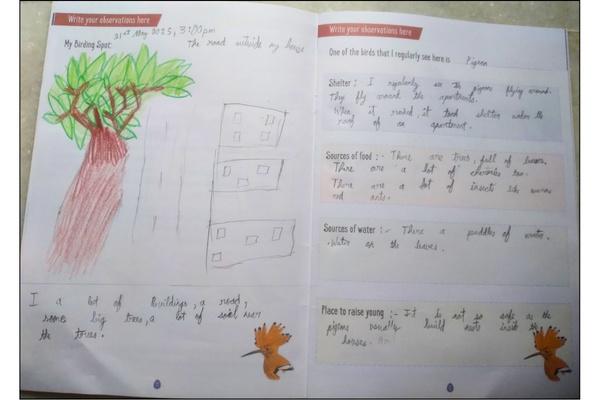 Write your observations here
31st May 2025, 3:00pm
My Birding Spot: The road outside my house
I a lot of buildings, a road,
some big trees, a lot of soil near
the trees.
Write your observations here
One of the birds that I regularly see here is Pigeon
Shelter: I regularly see the pigeons flying around.
They fly around the apartments.
When it rained, it took shelter under the
roof of an apartment.
Sources of food :- There are trees, full of leaves.
There are a lot of cherries too.
There are a lot of insects like worms
red ants.
Sources of water :- There a puddles of water.
Water on the leaves.
Place to raise young :- It is not so safe as the
pigeons usually build nests insit the
houses.